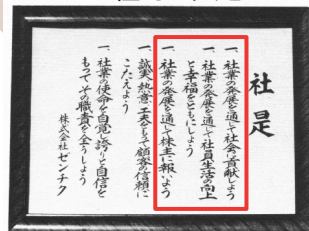 社是
一、社業の発展を通して社会に貢献しよう
一、社業の発展を通して社員生活の向上
と幸福をともにしよう
一、社業の発展を通して株主に報いよう
一、誠実、熱意、工夫をもって顧客の信頼に
こたえよう
一、社業の使命を自覚し誇りと自信を
もってその職責を全うしよう
株式会社ゼンチク